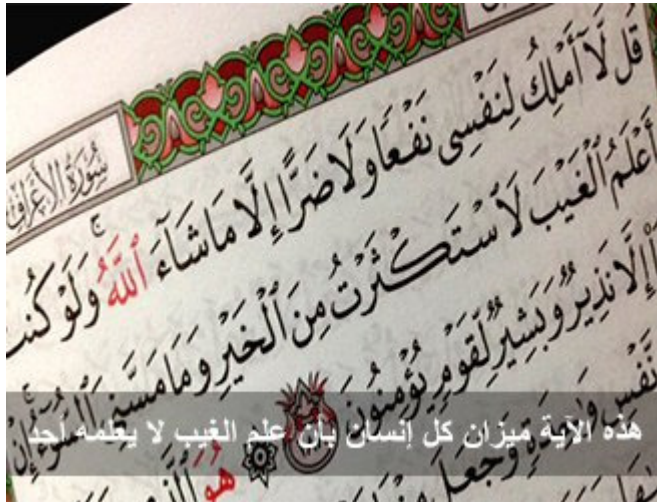 سُورَةُ الأَعْرَافِ
قُل لَّآ أَمْلِكُ لِنَفْسِى نَفْعًا وَلَا ضَرًّا إِلَّا مَا شَآءَ ٱللَّهُ وَلَوْ كُنتُ
أَعْلَمُ ٱلْغَيْبَ لَٱسْتَكْثَرْتُ مِنَ ٱلْخَيْرِ وَمَا مَسَّنِىَ ٱلسُّوٓءُ إِنْ
إِلَّا نَذِيرٌ وَبَشِيرٌ لِّقَوْمٍ يُؤْمِنُونَ
نَّفْسٍ وَٰحِدَةٍ وَجَعَلَ
هُوَ ٱلَّذِى
هذه الآية ميزان كل إنسان بأن علم الغيب لا يعلمه أحد